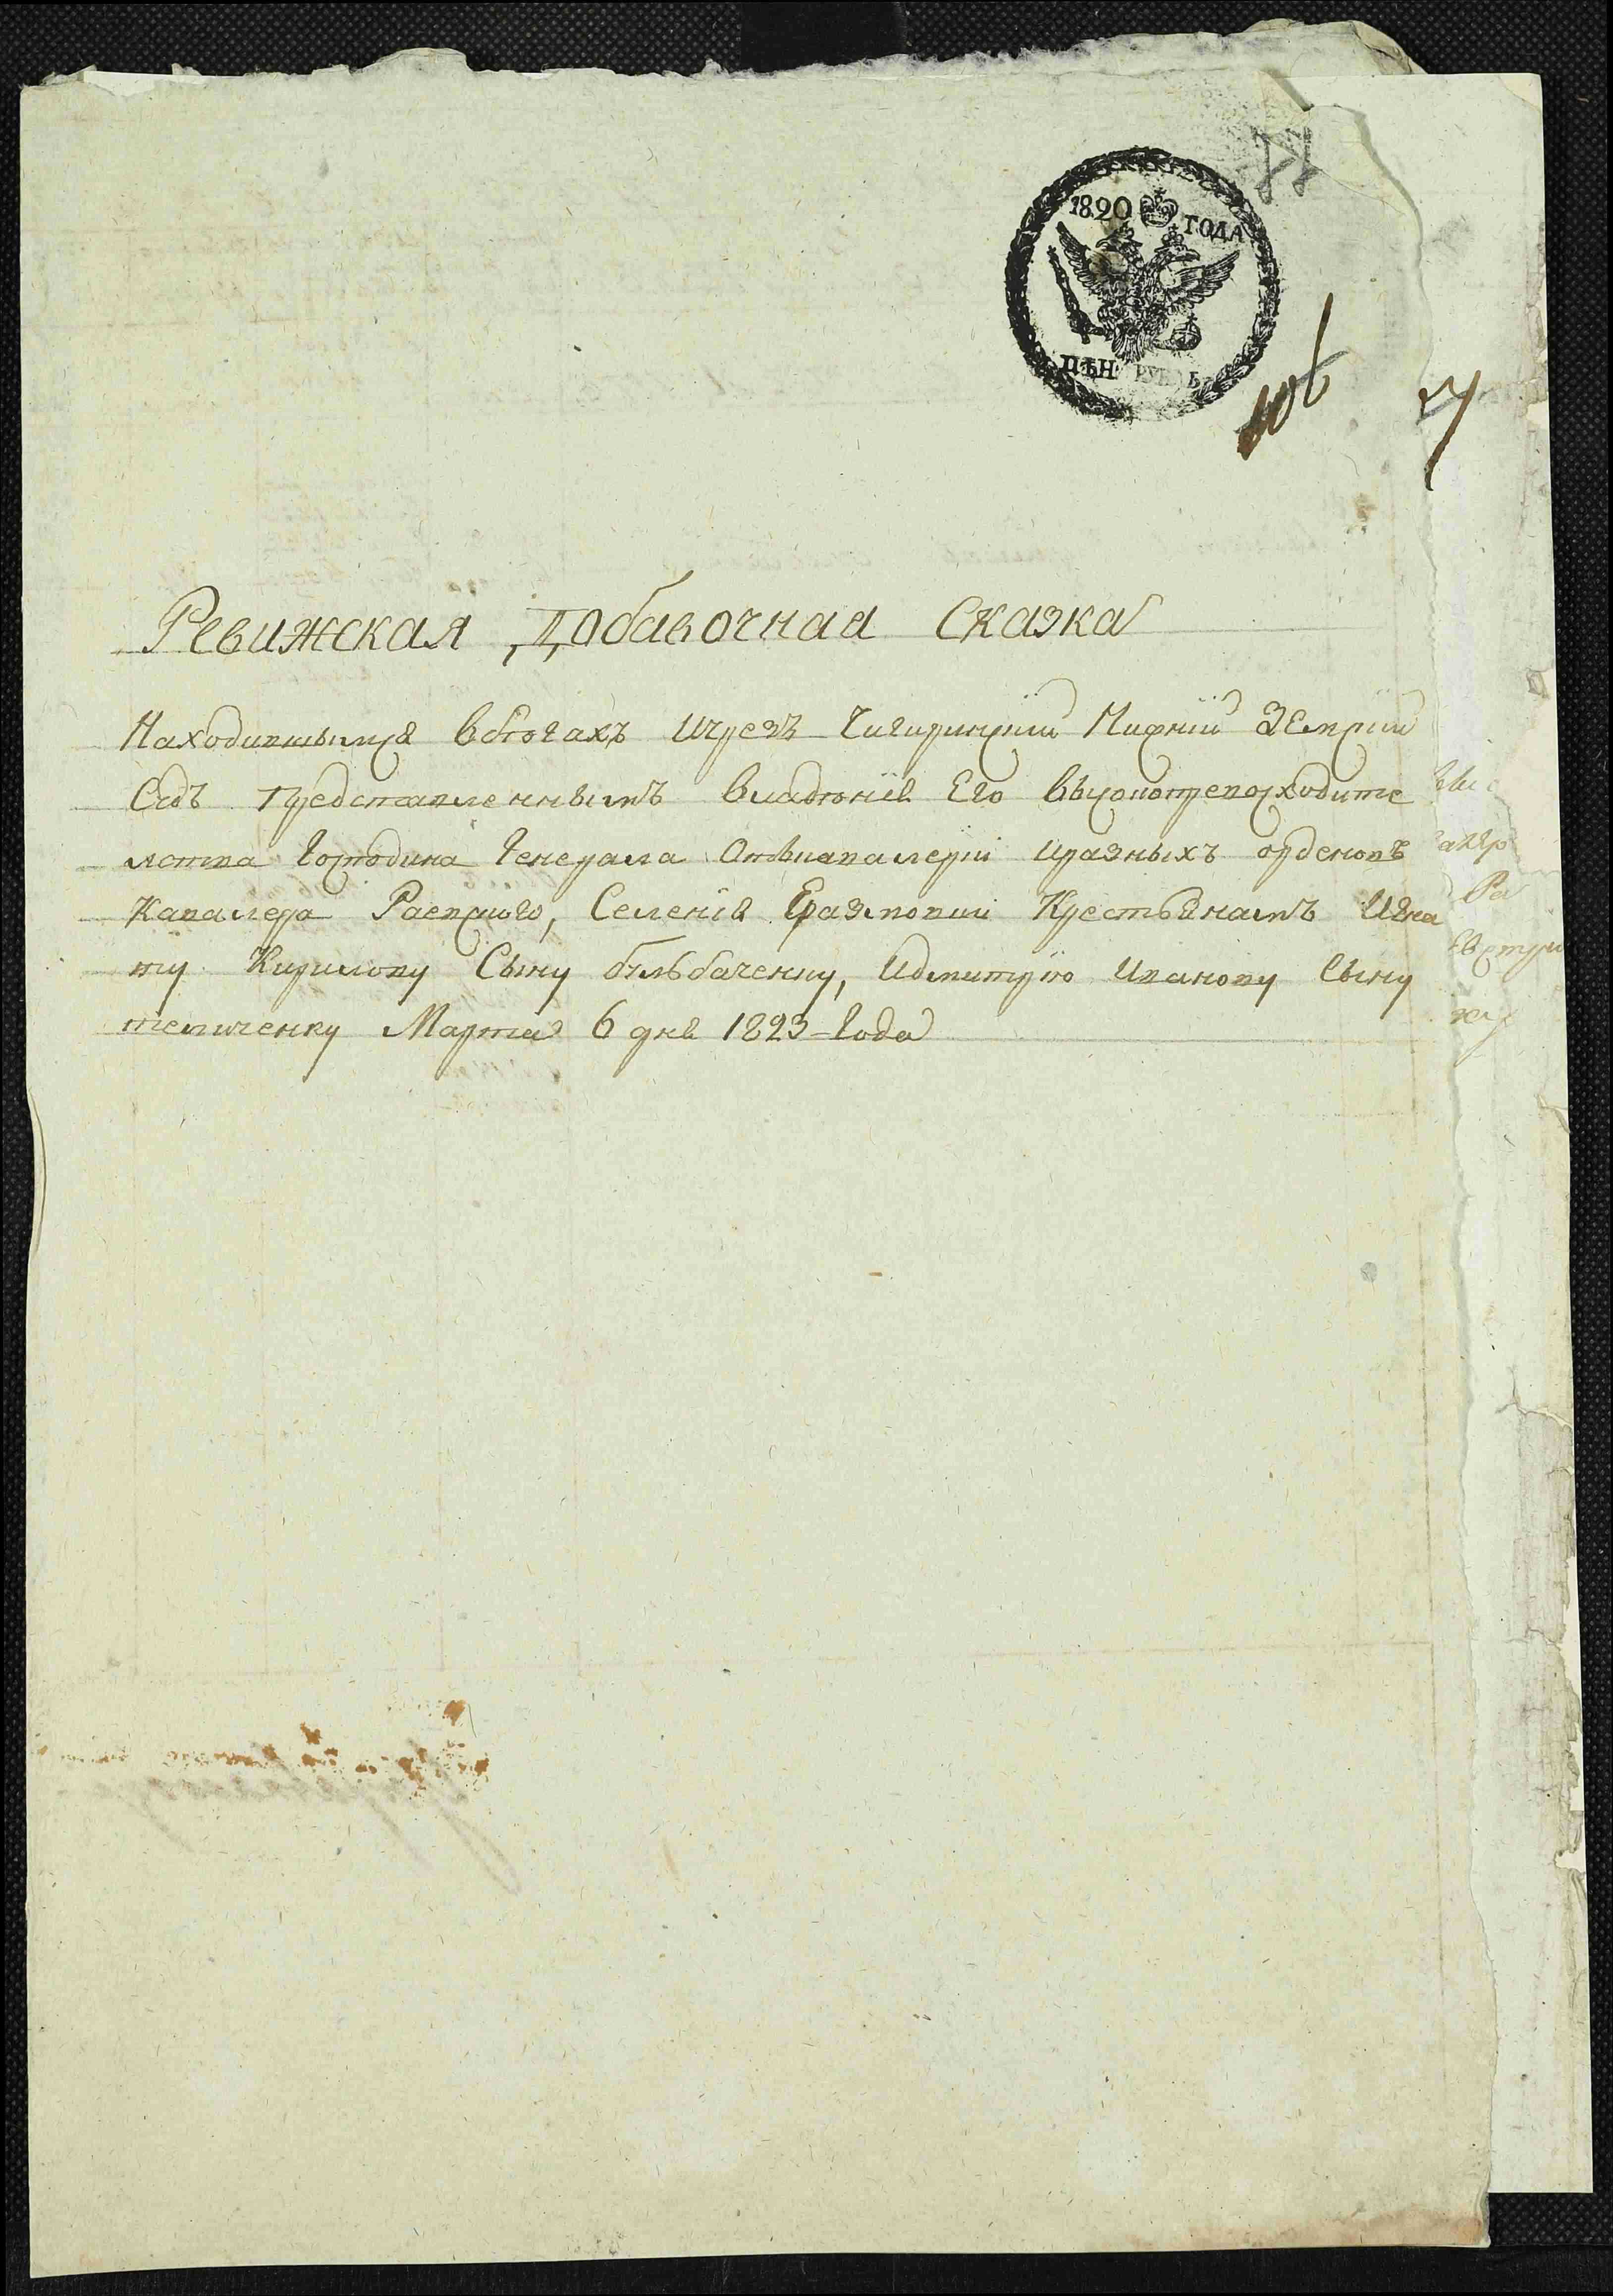 1820 ГОДА
ЦѢН: РУБЛЬ
106
Ревижская Добавочная Сказка
Находившымся вбѣгахъ ичрезъ Чигиринскій Нижній Земскій
Судъ представленнымъ владѣнія Его высокопревосходите
лства Господина Генерала Откавалеріи иразныхъ орденовъ
Кавалера Раевского, Селенія Еразмовки Крестьянамъ Игна
ту Кирилову Сыну бѣлбаченку, Идмитрію Иванову Сыну
темченку Марта 6 дня 1823-Года